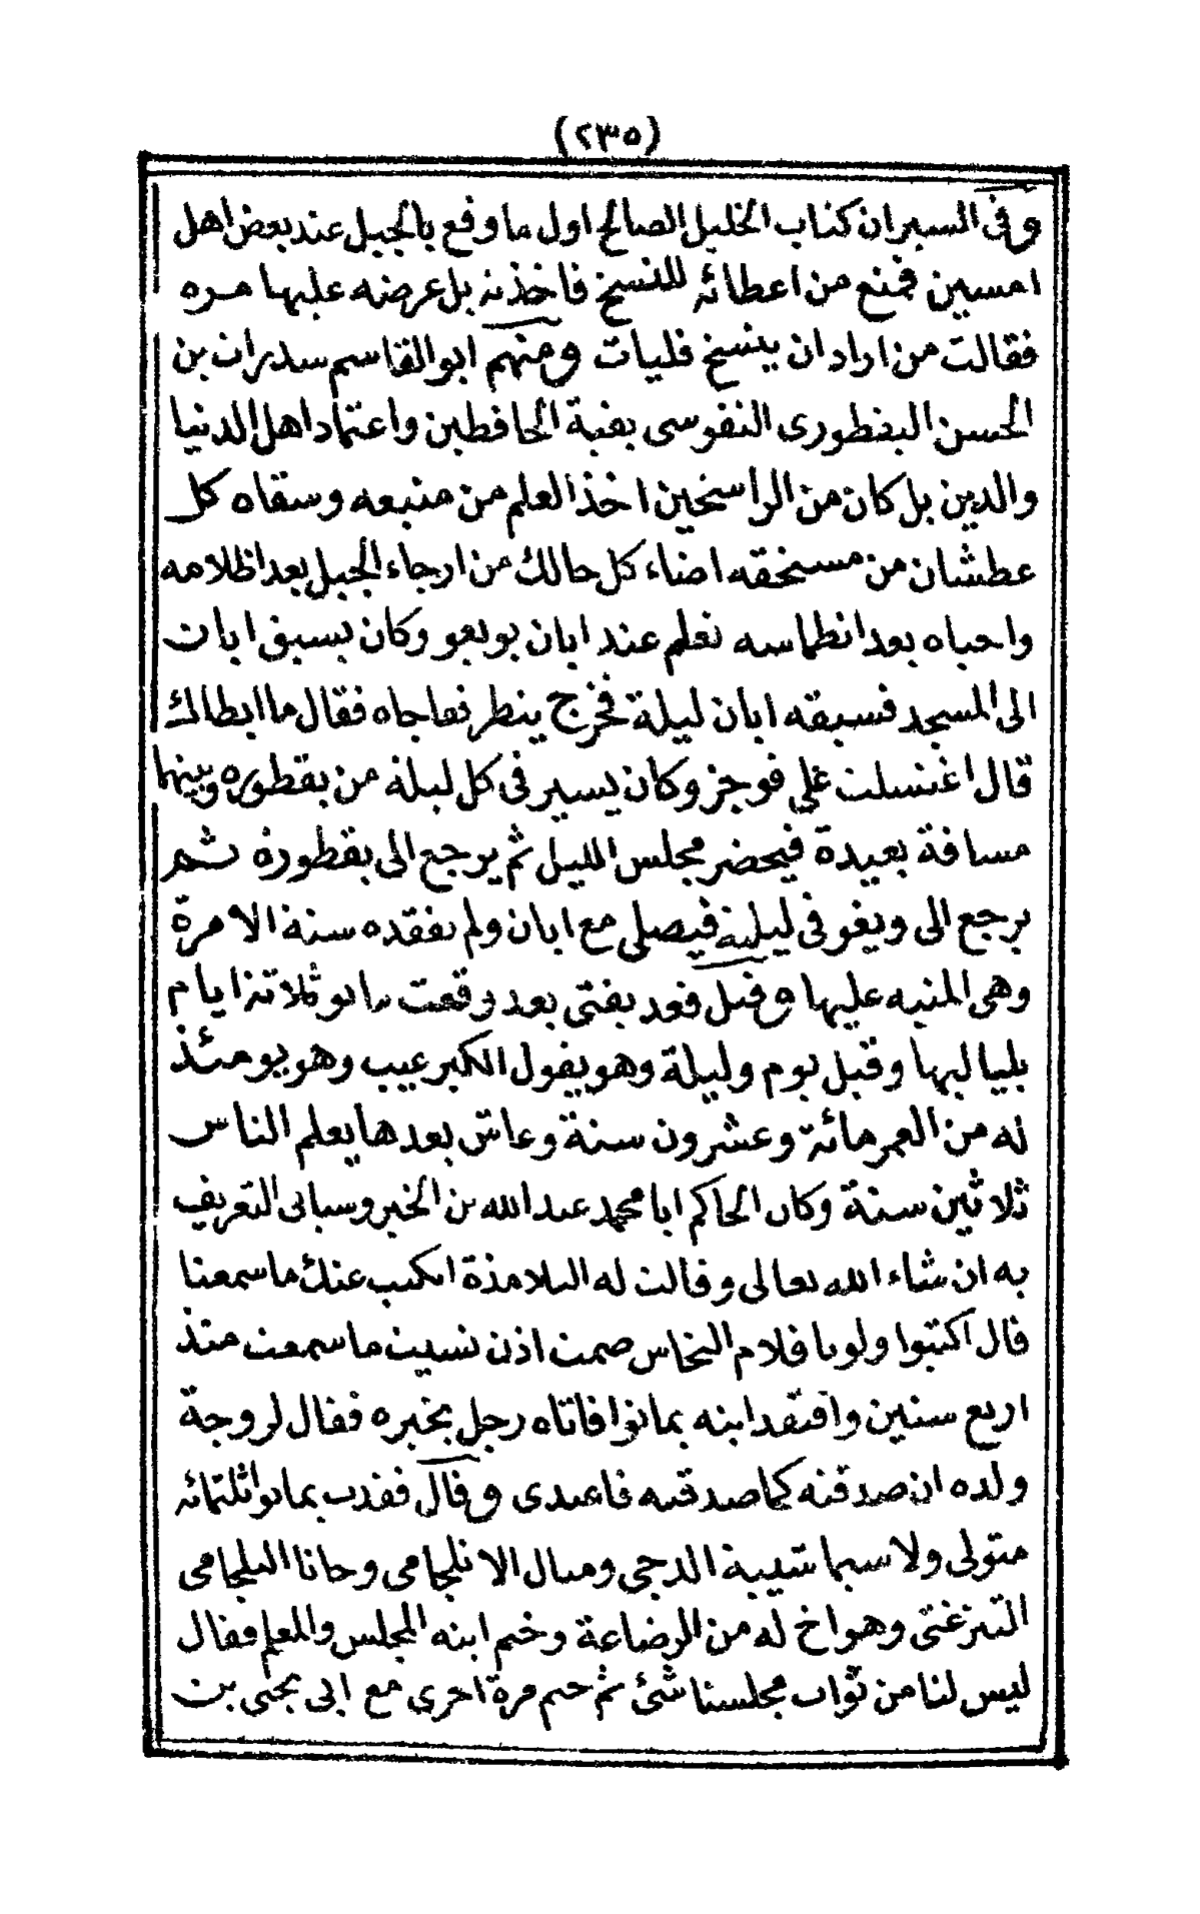 (٢٣٥)
وفى السيران كتاب الخليل الصالح اول ما وقع بالجبل عند بعض اهل
امسين فمنع من اعطائه للنسخ فاخذنه بل عرضه عليها مره
فقالت من اراد ان ينسخ فليات ومنهم ابو القاسم سدرات بن
الحسن البغطورى النفوسى بقية الحافظين واعتماد اهل الدنيا
والدين بل كان من الراسخين اخذ العلم من منبعه وسقاه كل
عطشان من مستحقه اضاء كل حالك من ارجاء الجبل بعد اظلامه
واحياه بعد انطماسه تعلم عند ابان بويغو وكان يسبق ابان
الى المسجد فسبقه ابان ليلة فخرج ينظر فاجاه فقال ما ابطاك
قال اغتسلت على فوجز وكان يسير فى كل ليلة من بقطوره وبينهما
مسافة بعيدة فيحضر مجلس الليل ثم يرجع الى بقطورة ثم
يرجع الى ويغو فى ليلته فيصلى مع ابان ولم يفقده سنة الا مرة
وهى المنبه عليها وقيل قعد يفتى بعد وقعت مانو ثلاثة ايام
بلياليها وقيل يوم وليلة وهو يقول الكبر عيب وهو يومئذ
له من العمر مائة وعشرون سنة وعاش بعدها يعلم الناس
ثلاثين سنة وكان الحاكم ابا محمد عبد الله بن الخير وسياتى التعريف
به ان شاء الله تعالى وقالت له التلامذة انكتب عنك ما سمعنا
قال اكتبوا ولو يا فلام النخاس صمت اذن نسيت ما سمعت منذ
اربع سنين وافتقد ابنه بمانوا فاتاه رجل يخبره فقال لزوجة
ولده ان صدقته كما صدقته فاعتدى وقال فقدت بمانو اثلثمائه
متولى ولا سيما شيبة الدجى وميال الانلجامى وحانا التلجامى
التنزغتى وهو اخ له من الرضاعة وختم ابنه المجلس والمعلم فقال
ليس لنا من ثواب مجلسنا شئ ثم ختم مرة اخرى مع ابى يحيى بن